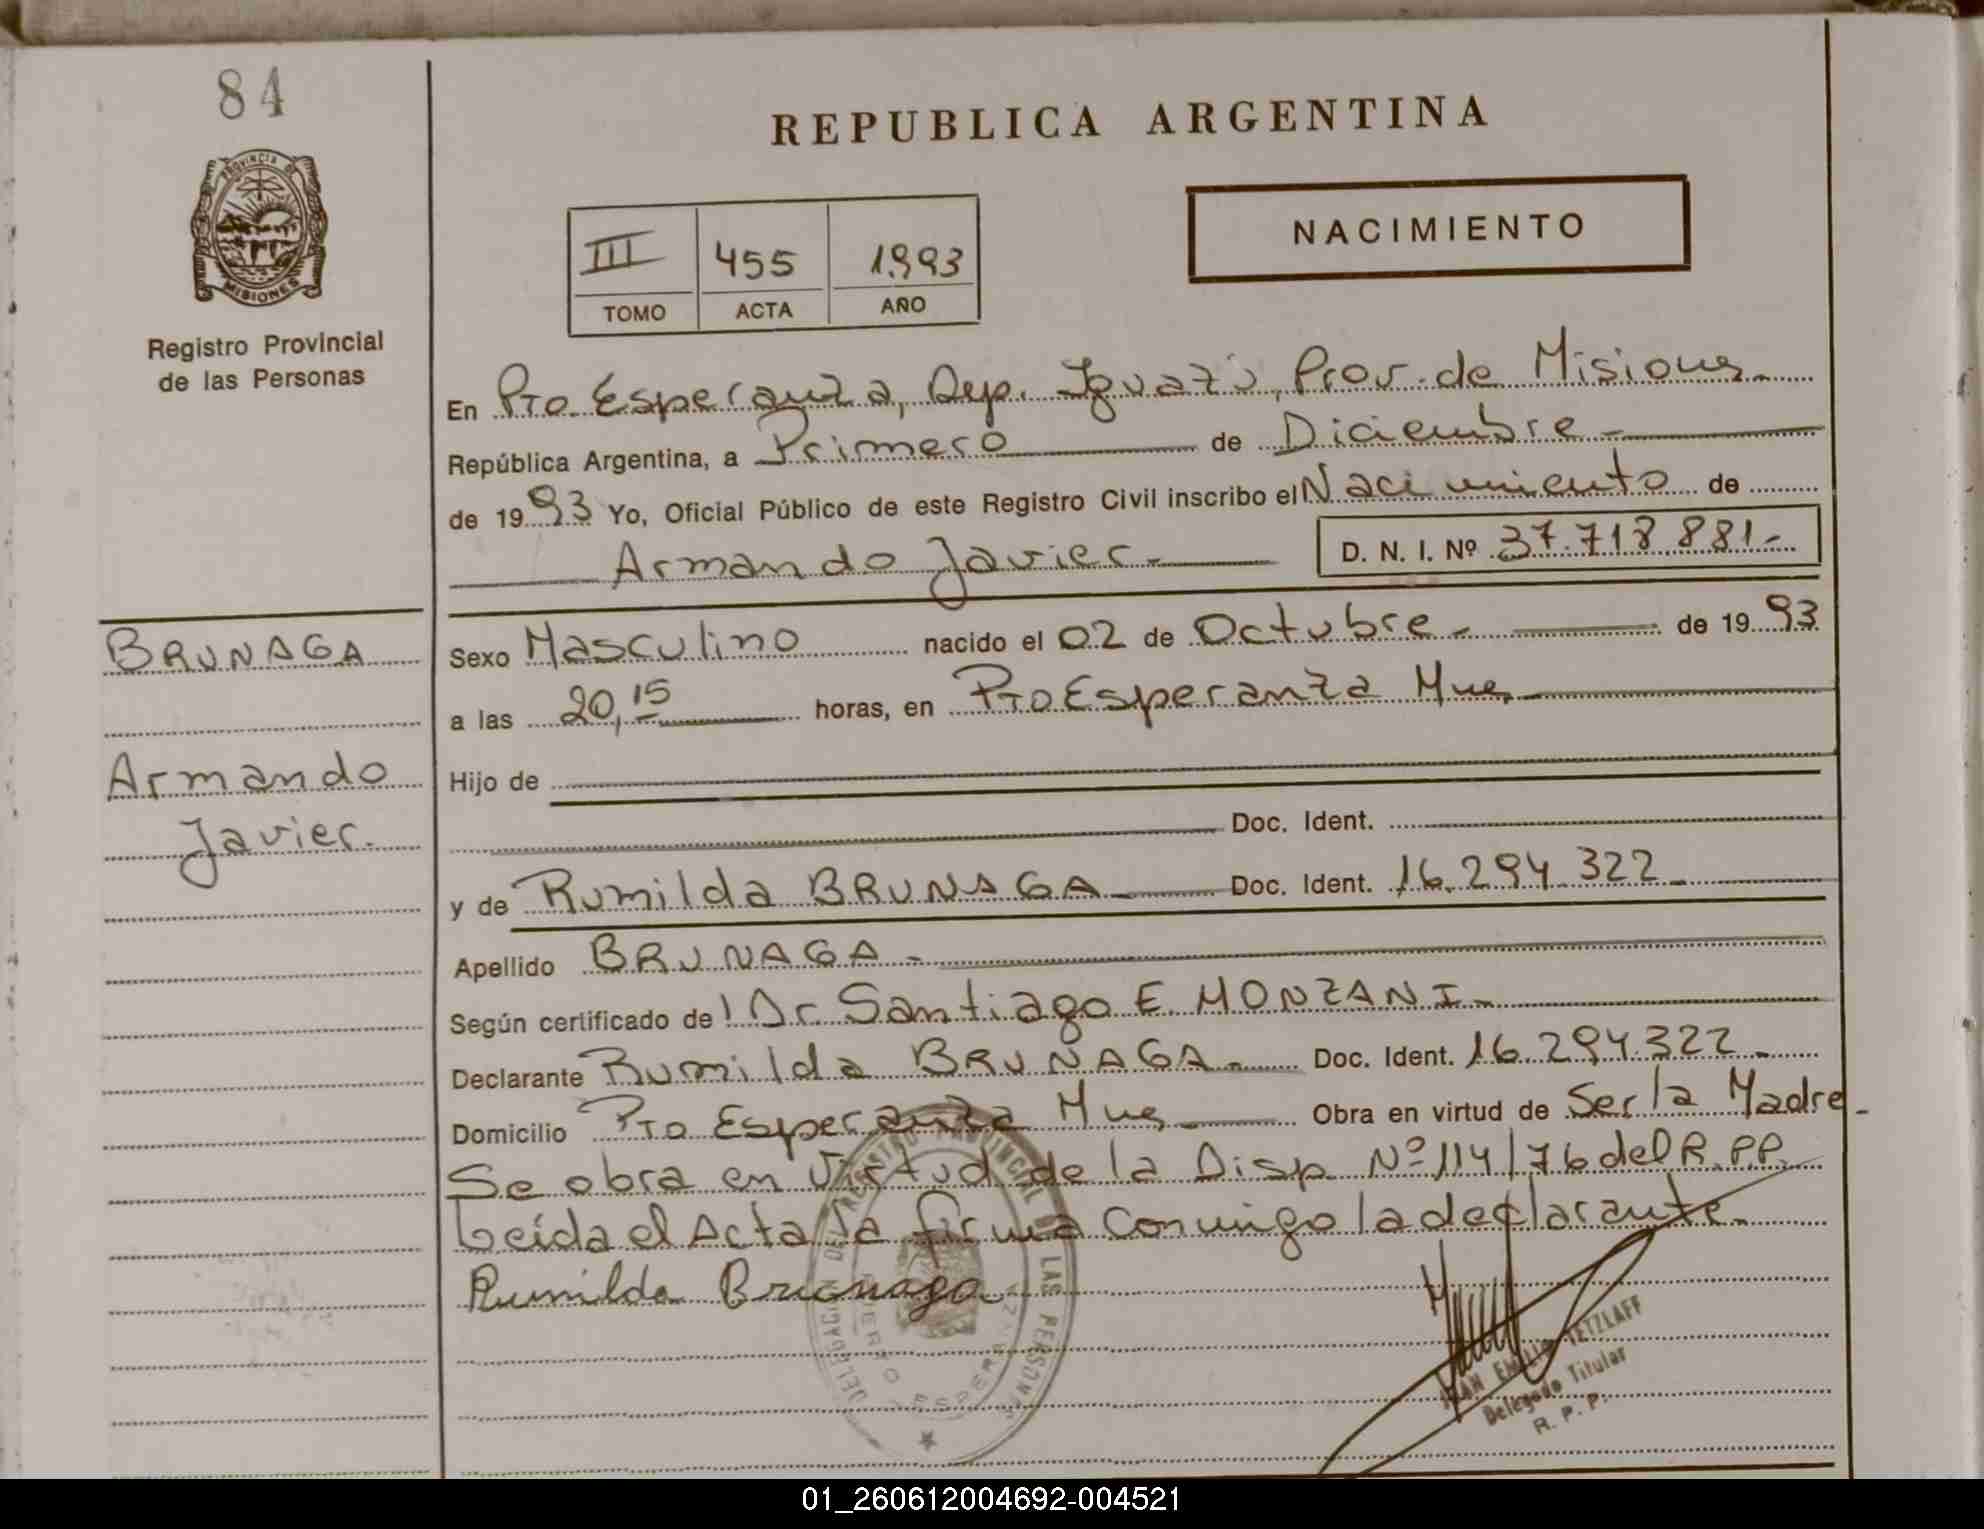 84
PROVINCIA DE
MISIONES
Registro Provincial
de las Personas
REPUBLICA ARGENTINA
III 455 1.993
TOMO ACTA AÑO
NACIMIENTO
En Pto Esperanza, Dep. Iguazú, Prov. de Misiones.
República Argentina, a Primero de Diciembre.
de 1993 Yo, Oficial Público de este Registro Civil inscribo el Nacimiento de
Armando Javier. D. N. I. Nº 37.718.881.-
BRUNAGA
Armando
Javier.
Sexo Masculino nacido el 02 de Octubre. de 1993
a las 20,15 horas, en Pto Esperanza Mnes
Hijo de
Doc. Ident.
y de Rumilda BRUNAGA Doc. Ident. 16.294.322.
Apellido BRUNAGA.
Según certificado del Dr Santiago E. MONZANI.
Declarante Rumilda BRUNAGA. Doc. Ident. 16.294.322.
Domicilio Pto Esperanza Mnes Obra en virtud de Ser la Madre.
Se obra en virtud de la Disp. Nº 114/76 del R.P.P.
Leída el Acta la firma conmigo la declarante.
Rumilda Brunaga
DELEGACION DEL REGISTRO PROVINCIAL DE LAS PERSONAS
PUERTO ESPERANZA
JUAN EMILIO TETZLAFF
Delegado Titular
R. P. P.
01_260612004692-004521